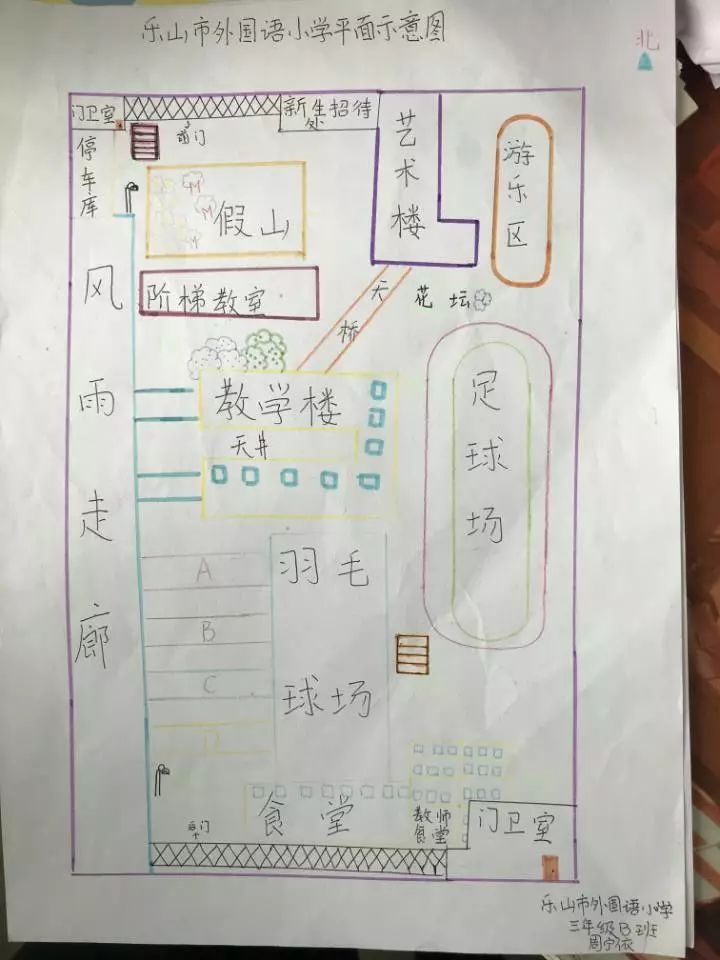 乐山市外国语小学平面示意图
北
门卫室
新生招待处
前门
艺术楼
游乐区
停车库
假山
阶梯教室
天桥
花坛
风雨走廊
教学楼
天井
足球场
A
B
C
D
羽毛球场
食堂
教师食堂
门卫室
后门
乐山市外国语小学
三年级B班
周宁依